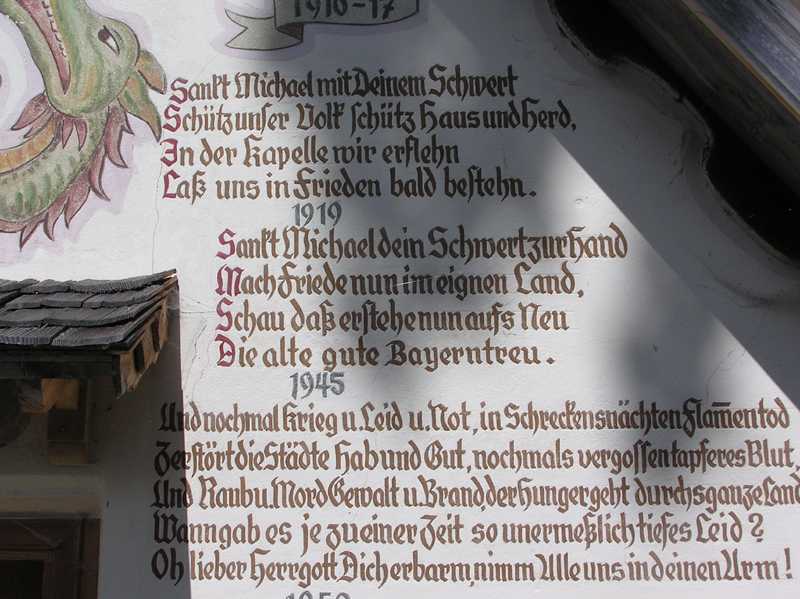 1916-17
Sankt Michael mit Deinem Schwert
Schütz unser Volk schütz Haus und Herd,
In der Kapelle wir erflehn
Laß uns in Frieden bald bestehn.
1919
Sankt Michael dein Schwert zur Hand
Mach Friede nun im eignen Land,
Schau daß erstehe nun aufs Neu
Die alte gute Bayerntreu.
1945
Und nochmal Krieg u. Leid u. Not, in Schreckensnächten Flam̅entod
Zerstört die Städte Hab und Gut, nochmals vergossen tapferes Blut,
Und Raub u. Mord Gewalt u. Brand, der Hunger geht durchs ganze Land
Wann gab es je zu einer Zeit so unermeßlich tiefes Leid?
Oh lieber Herrgott Dich erbarm, nimm Alle uns in deinen Arm!